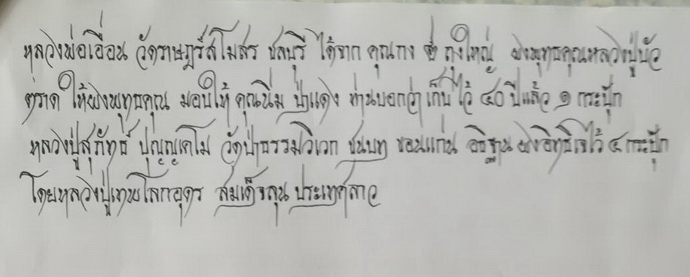 หลวงพ่อเอื่อน วัดราษฎร์สโมสร ชลบุรี ได้จาก คุณกง ถุงใหญ่ ผงพุทธคุณหลวงปู่บัว
ตราด ให้ผงพุทธคุณ มอบให้ คุณนิ่ม ป่าแดง ท่านบอกว่า เก็บไว้ ๔๐ ปีแล้ว ๑ กระปุก
หลวงปู่สุภัทธ์ ปุญฺญคโม วัดป่าธรรมวิเวก ชนบท ขอนแก่น อธิฐาน ผงอิทธิเจไว้ ๔ กระปุก
โดยหลวงปู่เทพโลกอุดร สมเด็จลุน ประเทศลาว